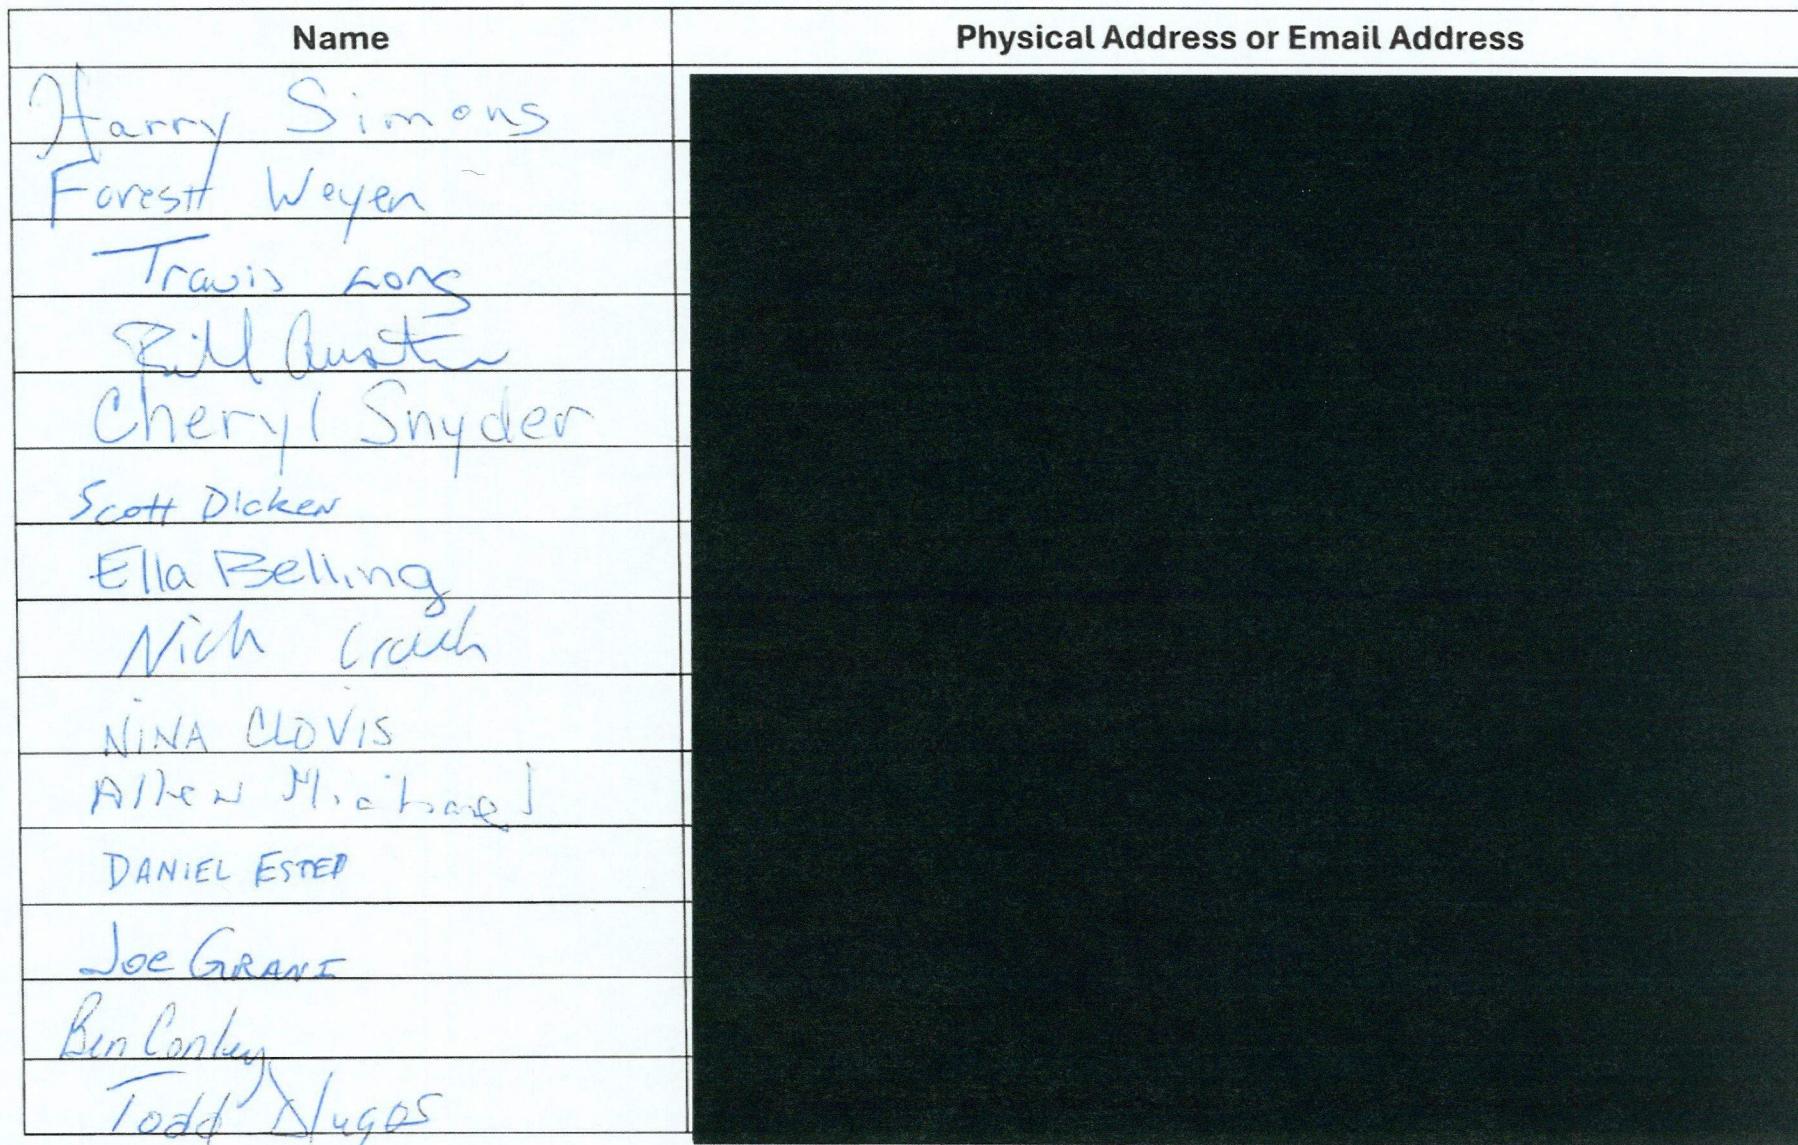 Name Physical Address or Email Address
Harry Simons
Forestt Weyen
Travis Long
Bill Austin
Cheryl Snyder
Scott Dicken
Ella Belling
Nick
NINA CLOVIS
Allen Michael
DANIEL ESTEP
Joe GRANT
Ben Conley
Todd